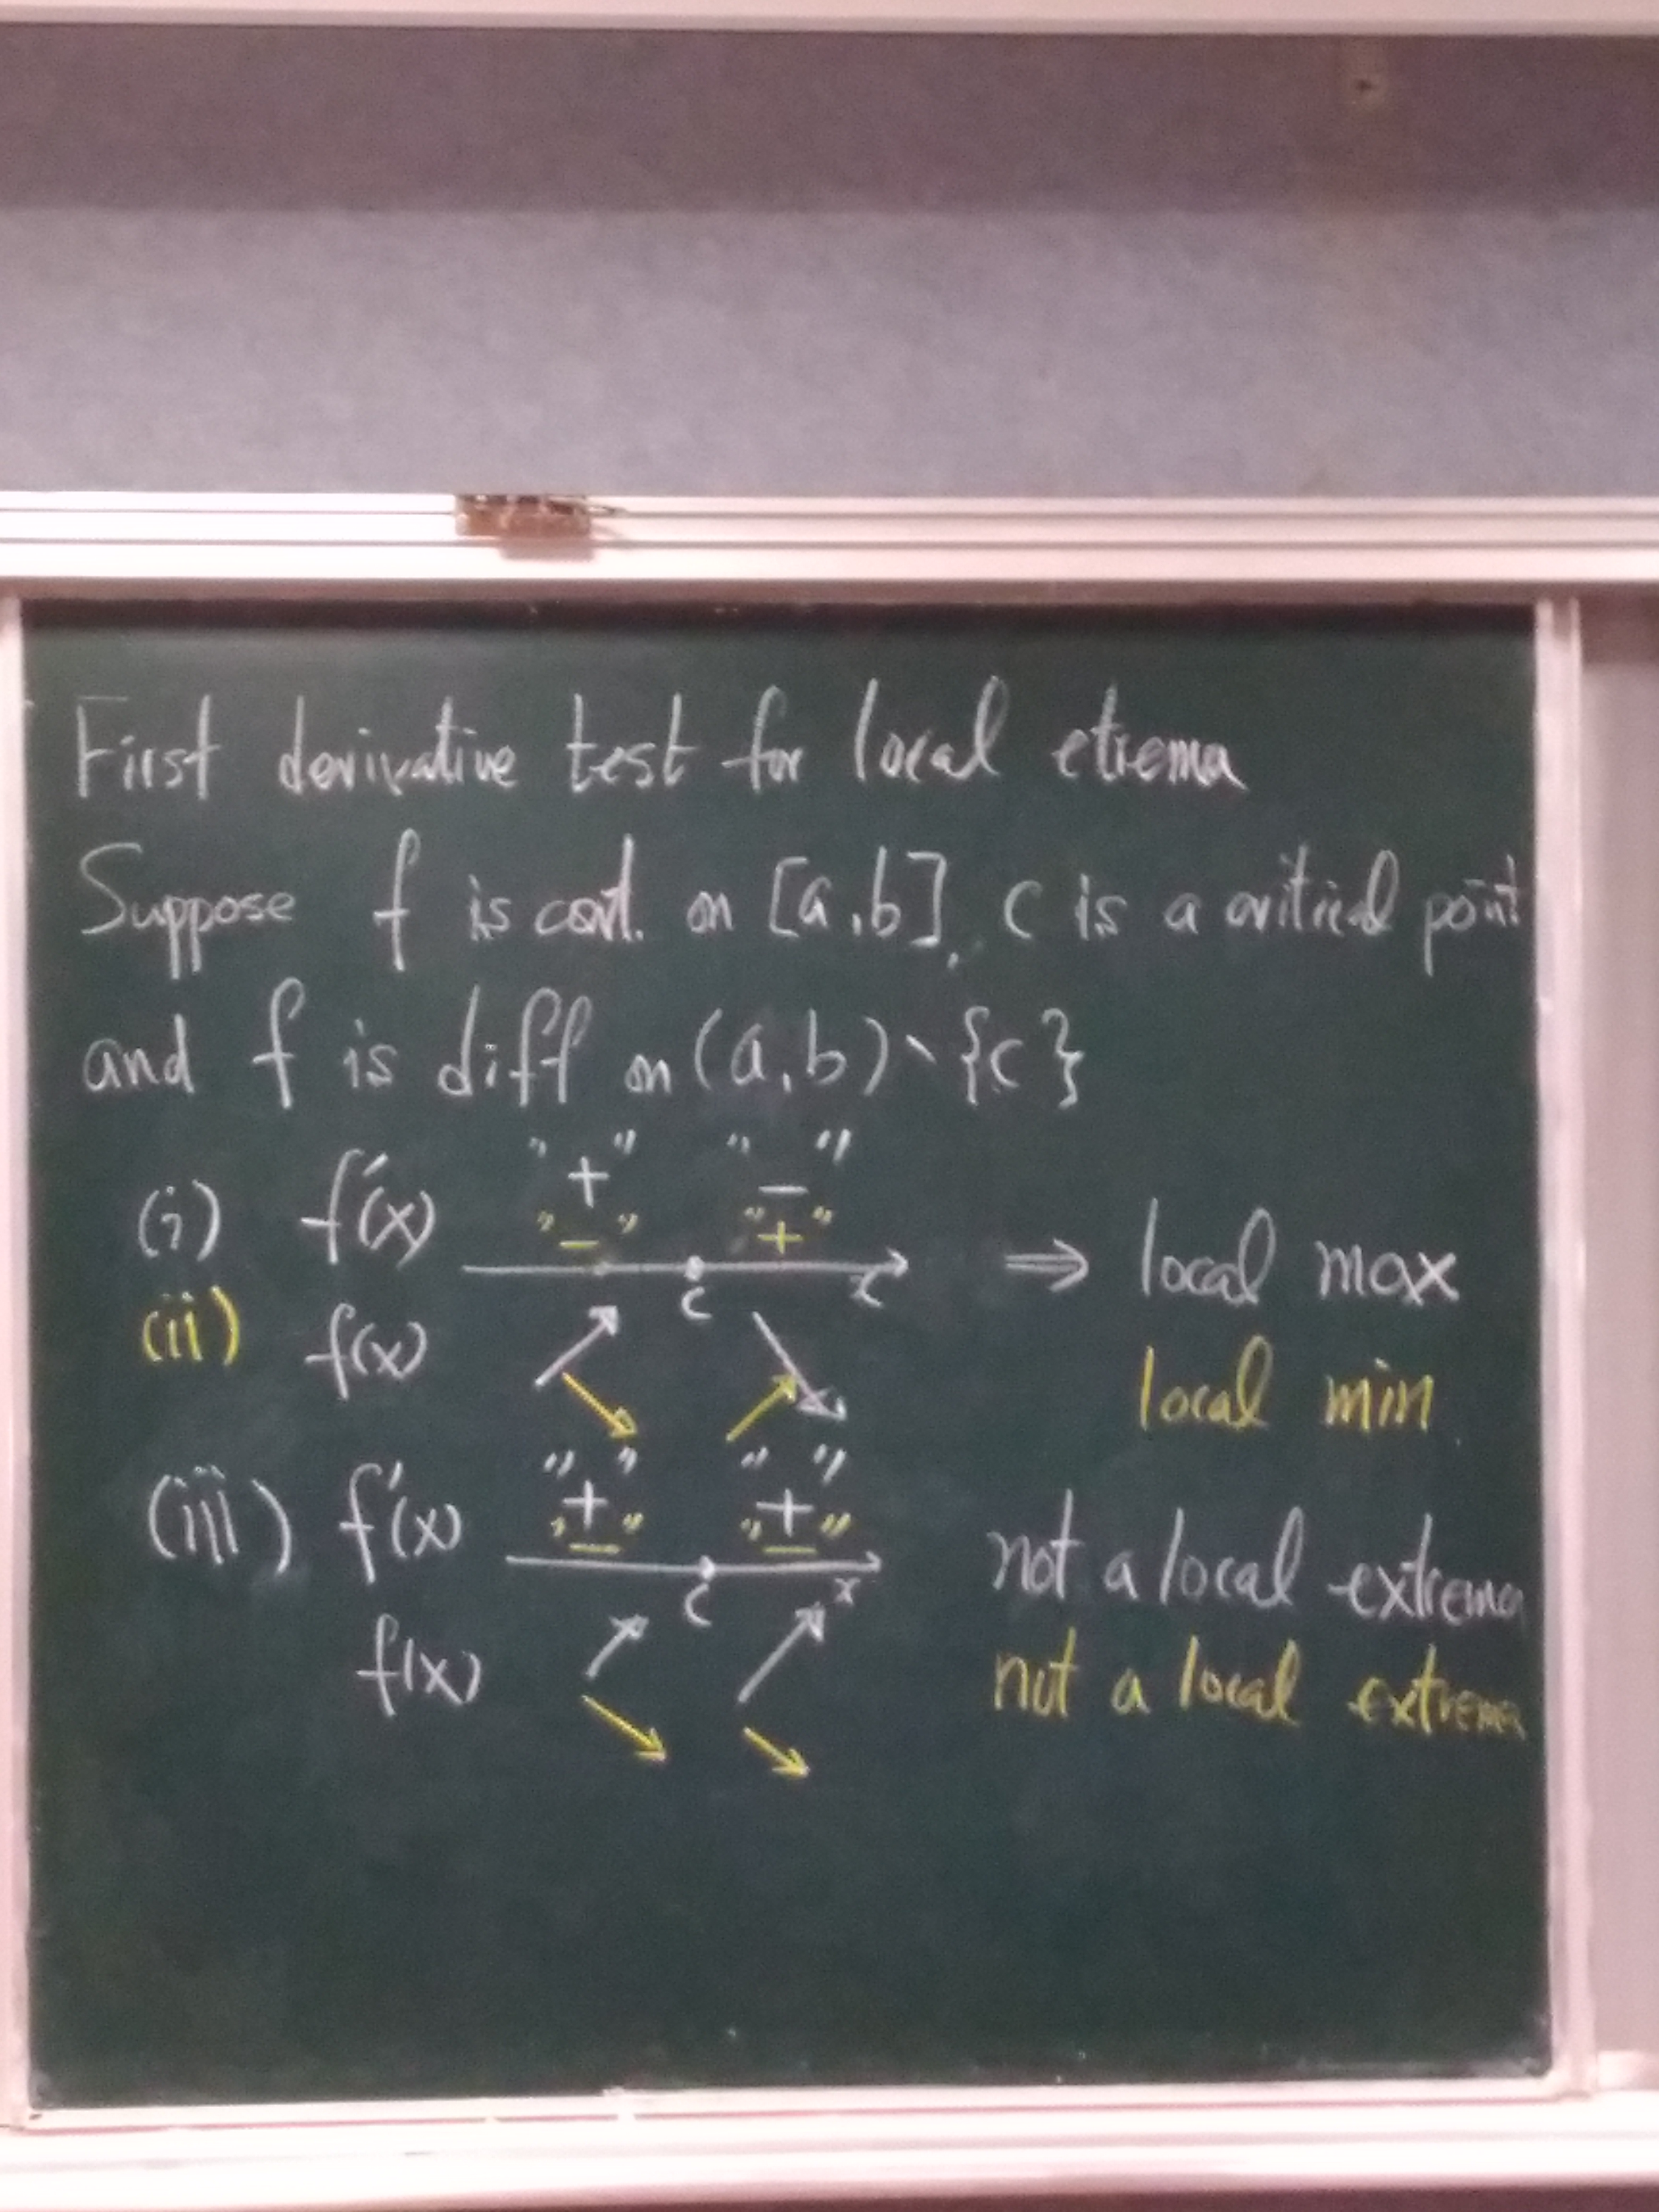 First derivative test for local etrema
Suppose f is cont. on [a,b], c is a critical point
and f is diff on (a,b)∖{c}
"+" "−"
(i) f′(x) "−" "+" ⇒ local max
c x
(ii) f(x) ↗ ↘ local min
↘ ↗
"+" "+"
(iii) f′(x) "−" "−" not a local extrema
c x
f(x) ↗ ↗ not a local extrema
↘ ↘